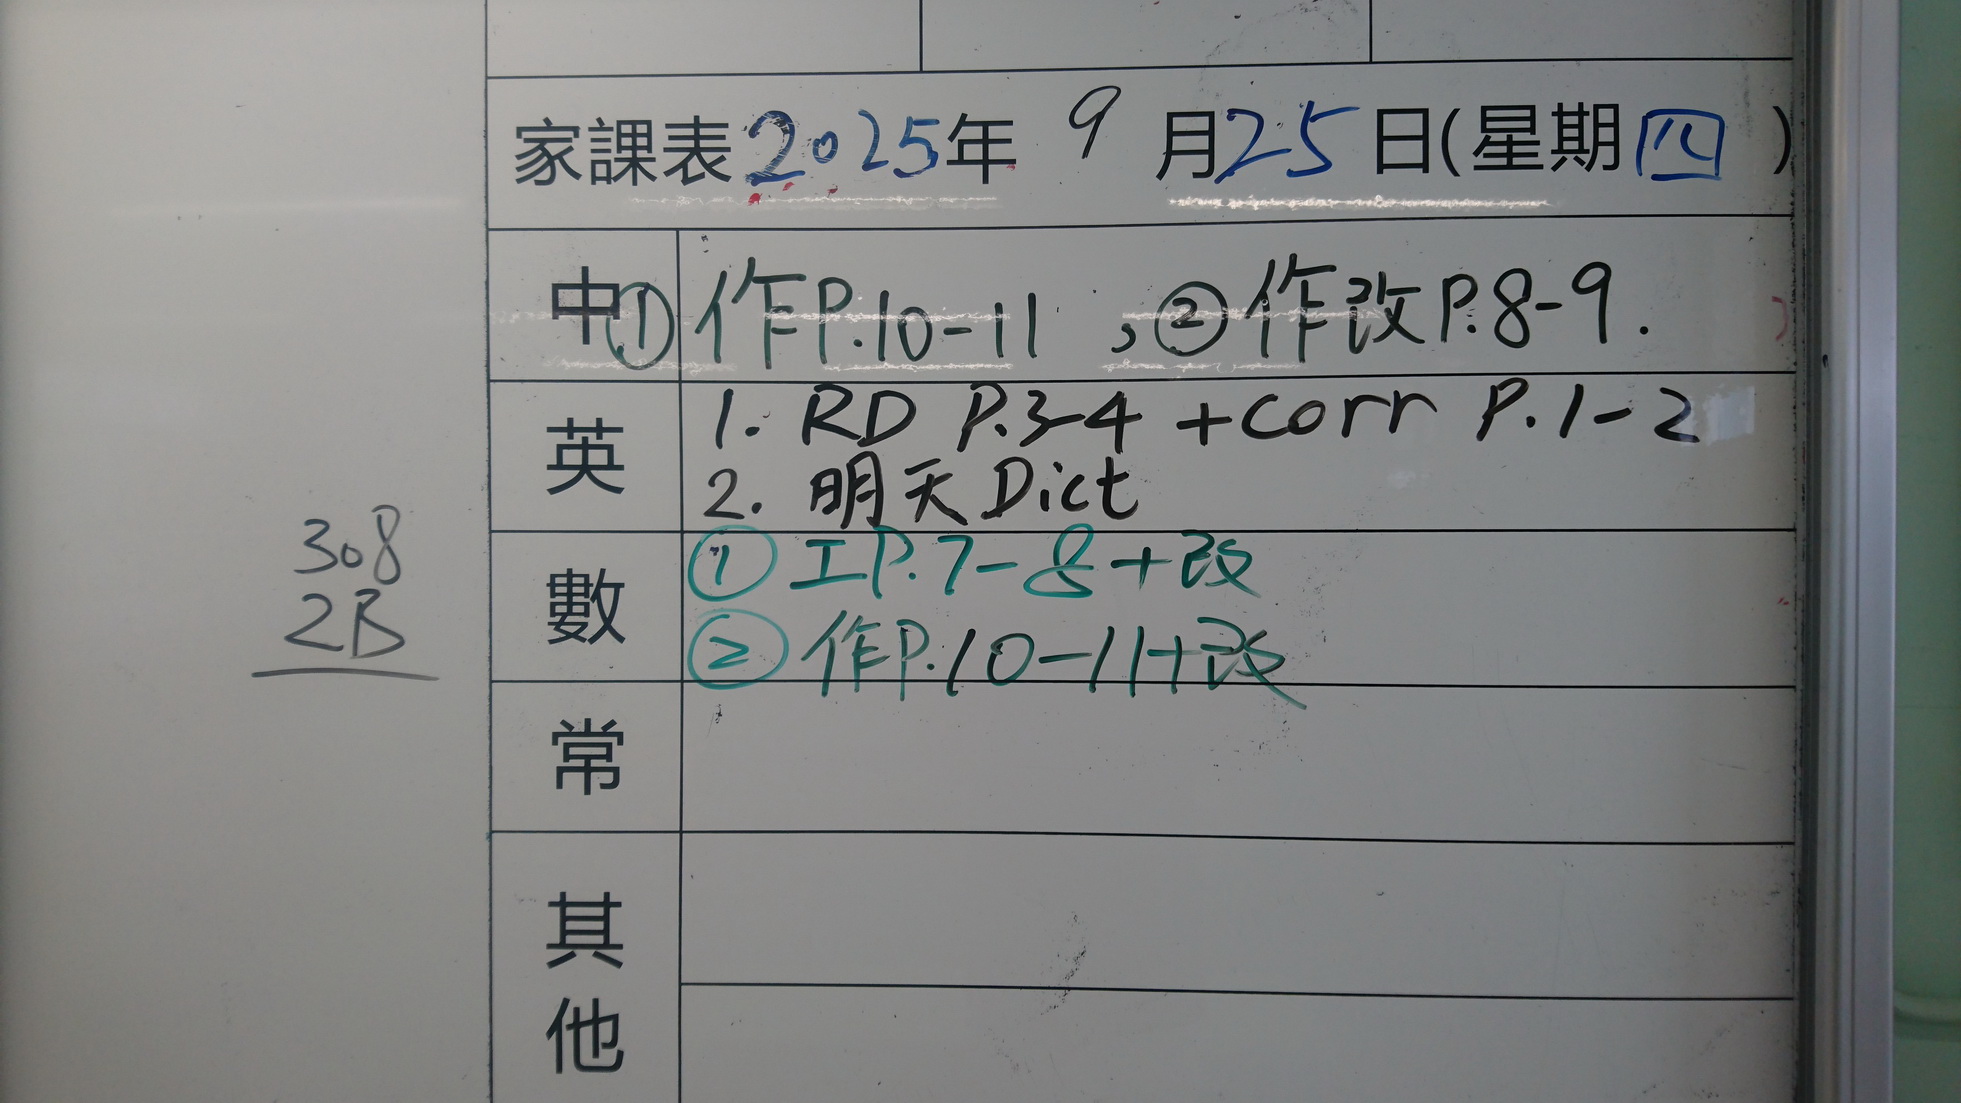 家課表2025年 9 月25日(星期四)
中 ①作P.10-11 , ②作改P.8-9.
英 1. RD P.3-4 +corr P.1-2
2. 明天Dict
數 ①工P.7-8+改
②作P.10-11+改
常
其他
308
2B